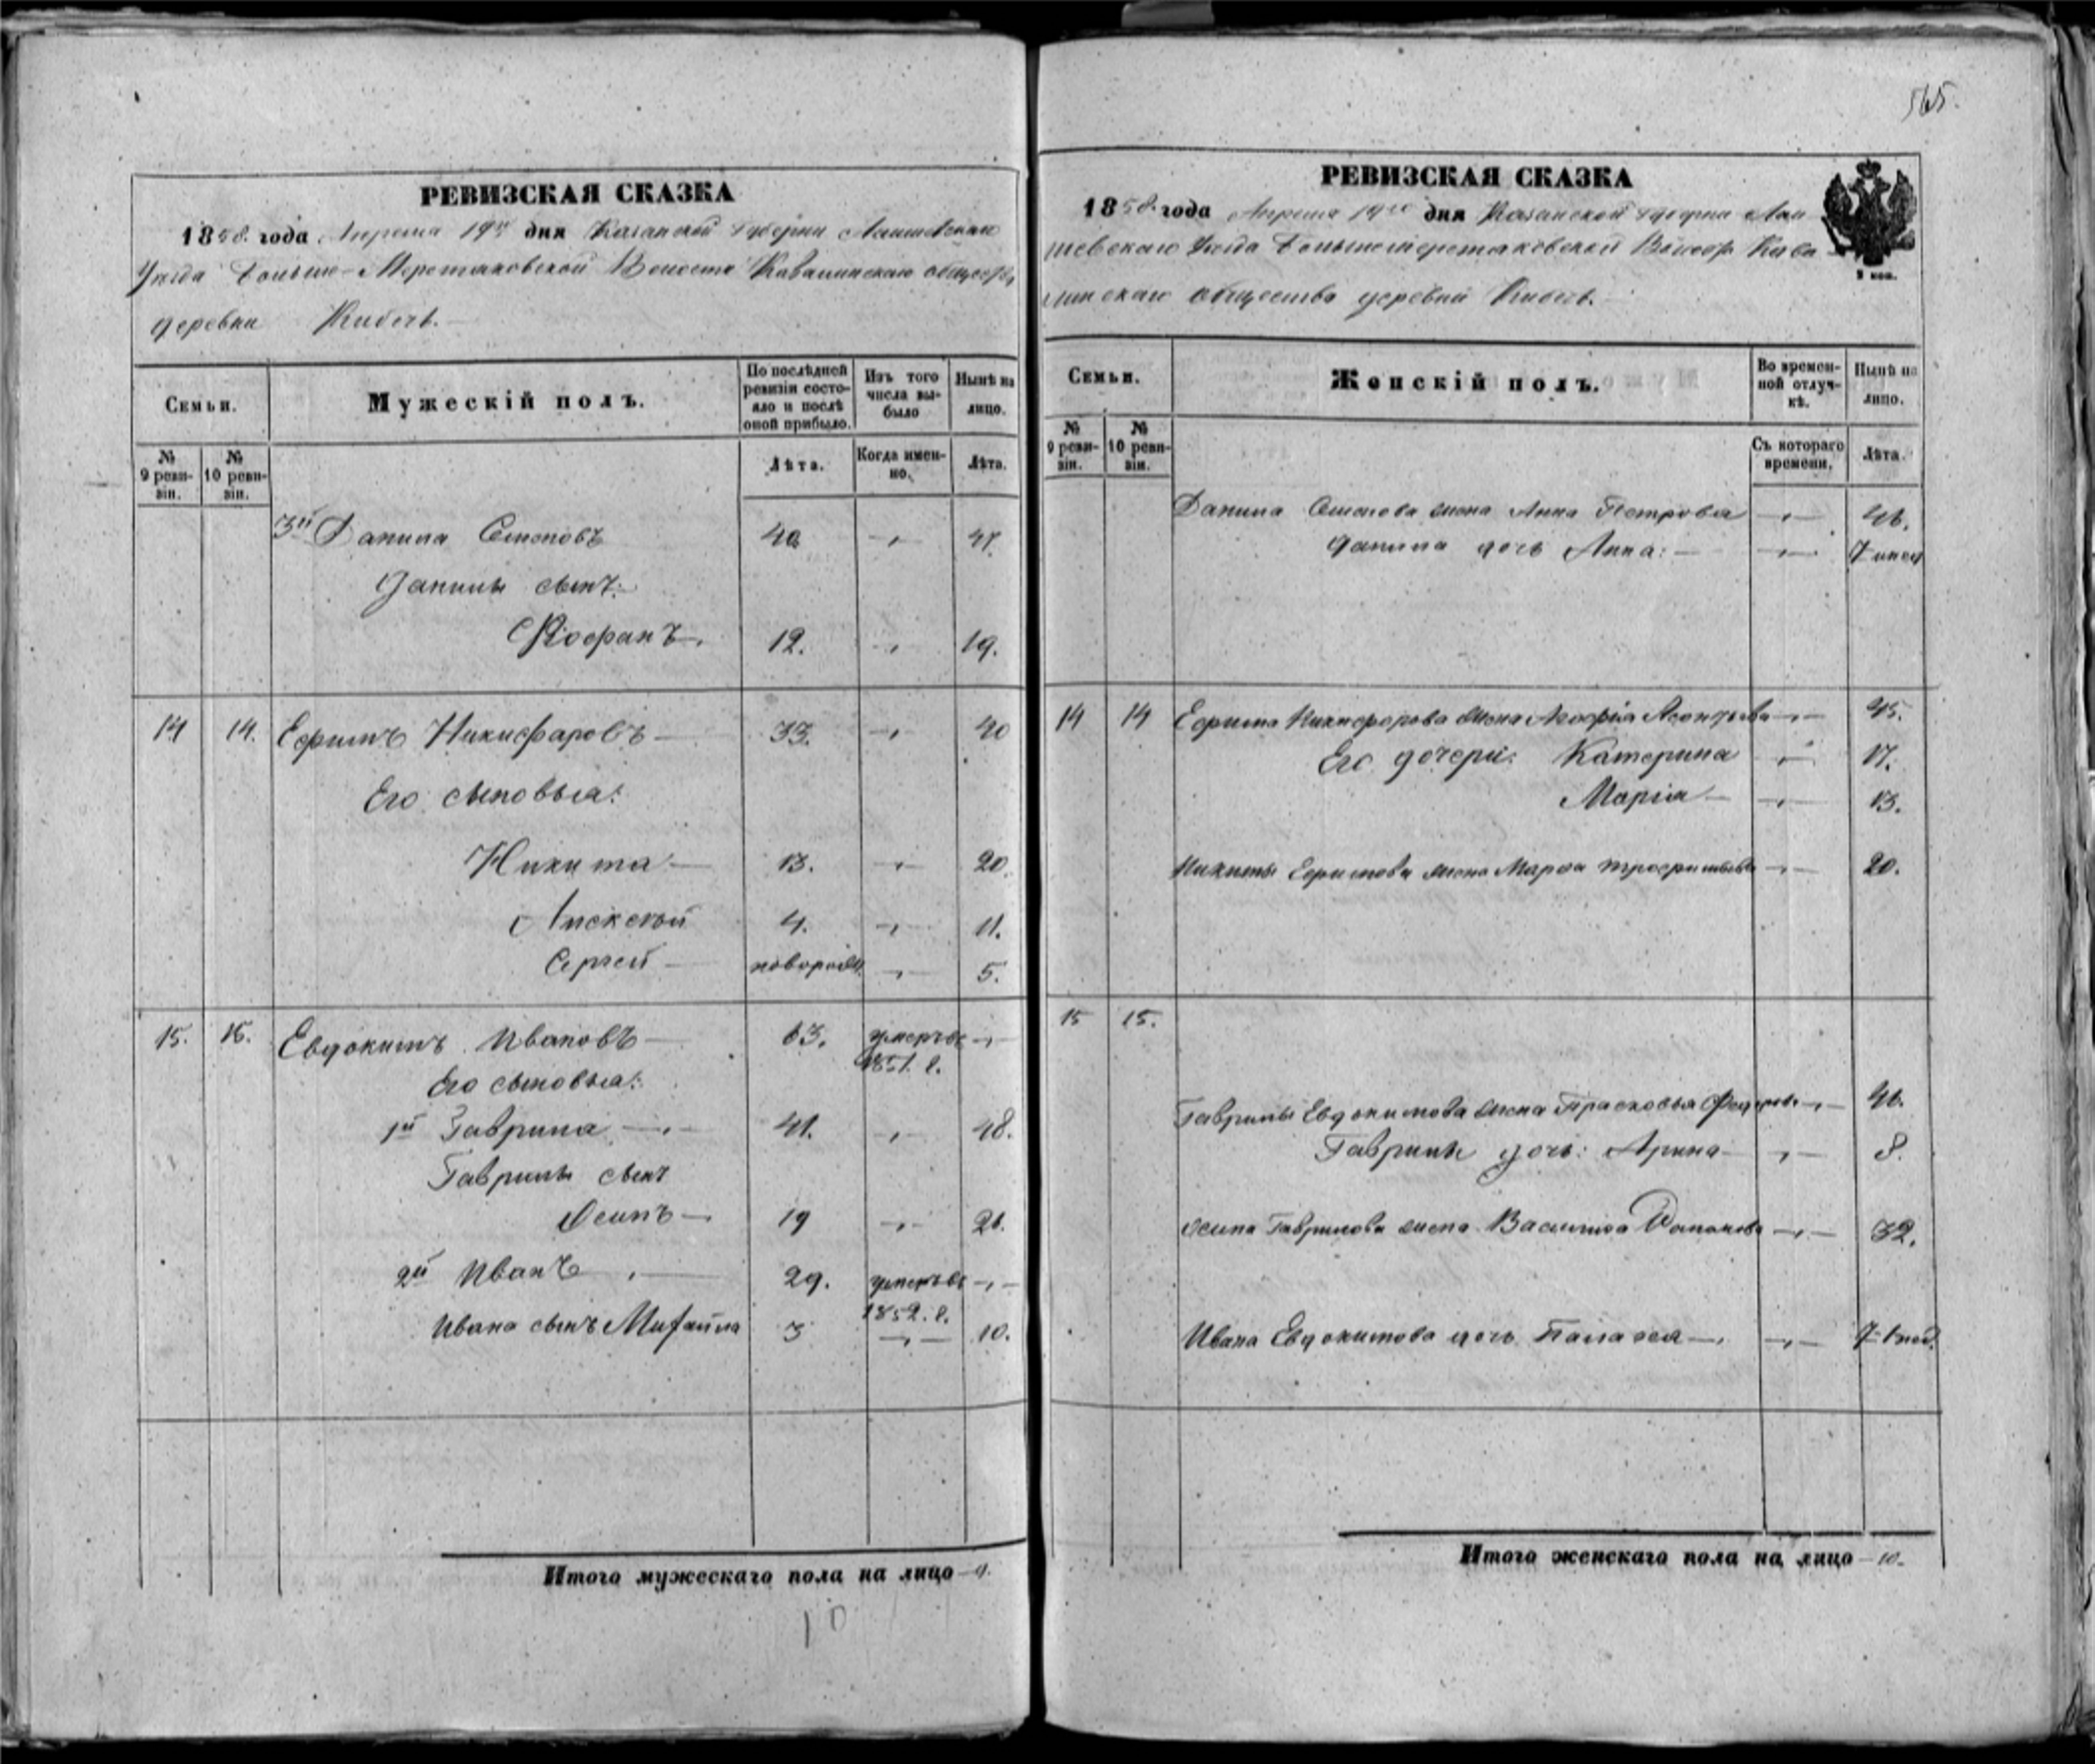 565.
РЕВИЗСКАЯ СКАЗКА
1858. года Апреля 19го дня Казанской Губернии Лаишевскаго
Уезда Больше-Меретяковской Волости Кавалинскаго общества
деревни Кибечь.
Семьи.
Мужескій полъ.
По послѣдней ревизіи состояло и послѣ оной прибыло.
Изъ того числа выбыло
Нынѣ на лицо.
№ 9 ревизіи.
№ 10 ревизіи.
Лѣта.
Когда именно.
Лѣта.
3й Данила Семеновъ 40 — 47.
Данилы сынъ:
12. — 19.
14 14. Ефимъ Никифаровъ — 33. — 40
Его сыновья:
Никита — 13. — 20.
4. — 11.
Сергей — новорожд. — 5.
15. 15. Евдокимъ Ивановъ — 63. умеръ въ —
1851. г.
Его сыновья:
1й Гаврила — 41. — 48.
Гаврилы сынъ
Осипъ — 19 — 26.
2й Иванъ — 29. умеръ въ —
1852. г.
Ивана сынъ Михайла 3 — 10.
Итого мужескаго пола на лицо — 9.
10
РЕВИЗСКАЯ СКАЗКА
1858. года Апреля 19го дня Казанской Губерни Лаи-
шевскаго Уезда Большемеретяковской Волос. Кава-
линскаго общества деревни Кибечь.
Семьи.
Женскій полъ.
Во временной отлучкѣ.
Нынѣ на лицо.
№ 9 ревизіи.
№ 10 ревизіи.
Съ котораго времени.
Лѣта.
Данила Семенова жена Анна Петрова — 46.
Данила дочь Анна: — — 7
14 14 Ефима Никифорова жена Леонтьева — 45.
Его дочери: Катерина — 17.
Марія — — 13.
Никиты Ефимова жена Марфа — 20.
15 15.
Гаврилы Евдокимова жена Прасковья Федорова — 46.
Гаврилы дочь: Арина — — 8.
Осипа Гаврилова жена Василиса — 32.
Ивана Евдокимова дочь Палагея — — 7
Итого женскаго пола на лицо — 10.